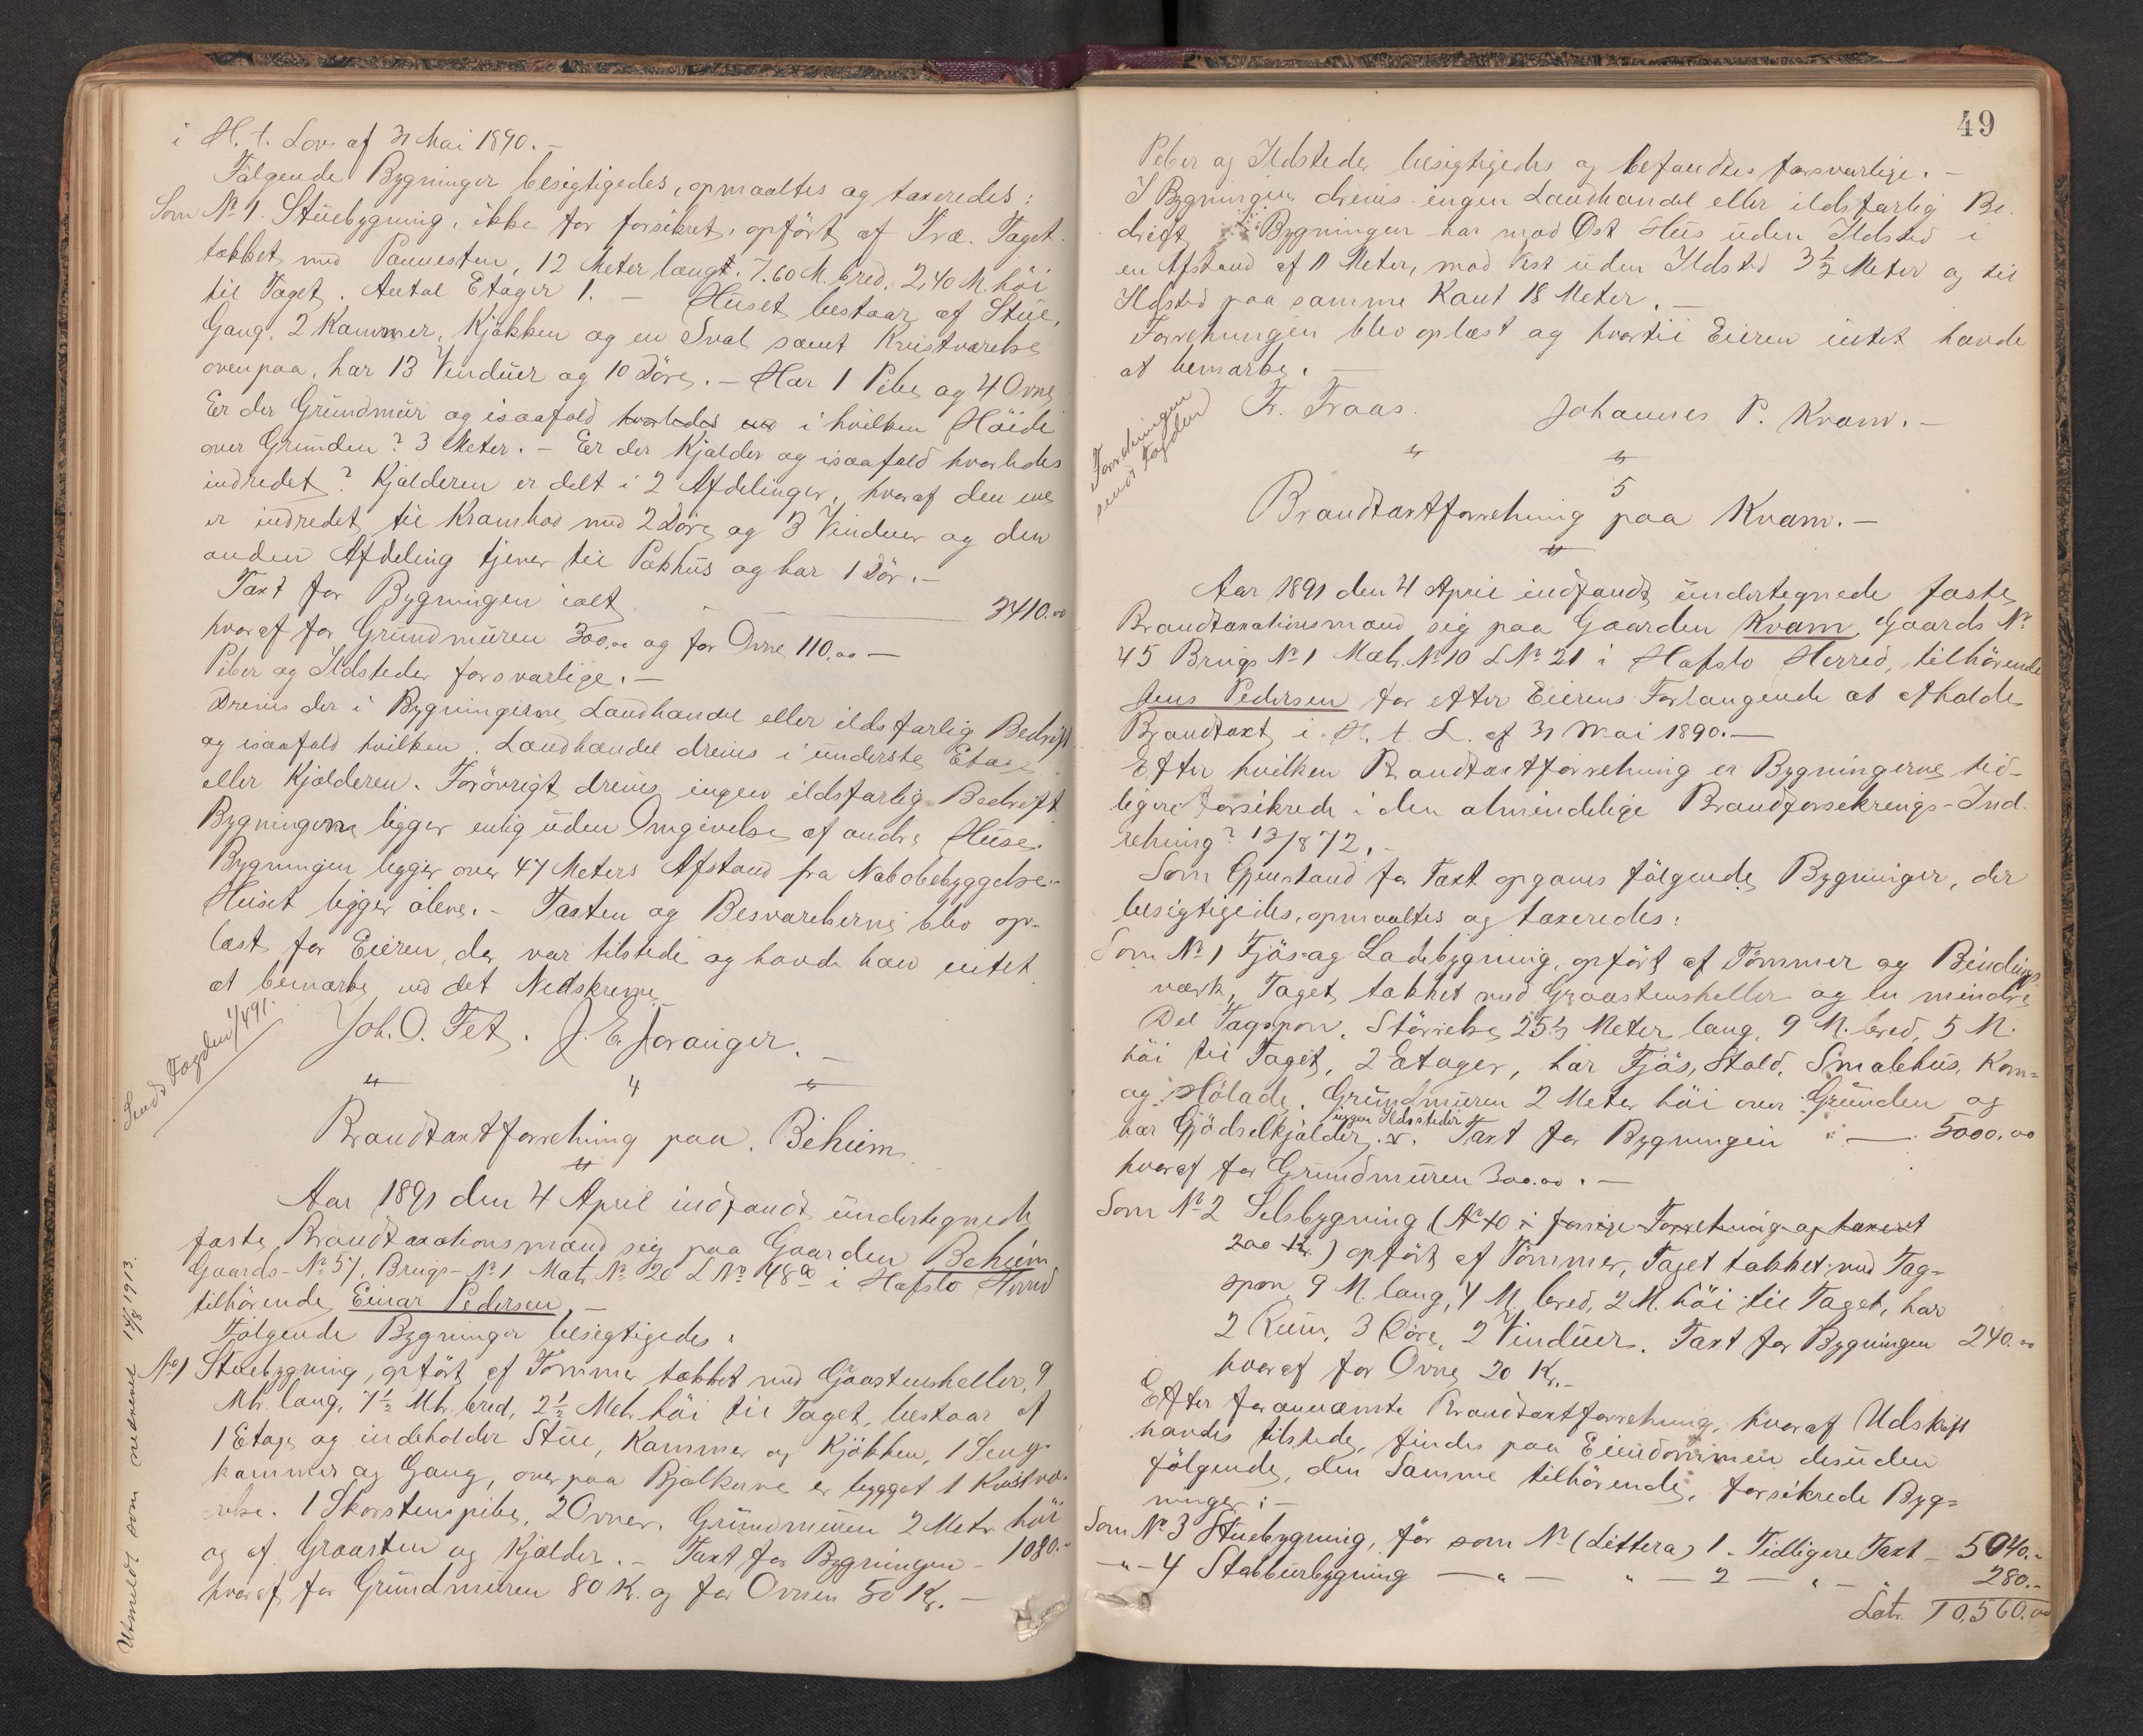 i H. t. Lov af 31 Mai 1890. –
Følgende Bygninger besigtigedes, opmaaltes og taxeredes:
Som No 1. Stuebygning, ikke før forsikret, opført af Træ. Taget
tækket med Pannesten, 12 Meter langt. 7.60 M. bred, 2,40 M. høi
til Taget. Antal Etager 1. – Huset bestaar af Stue,
Gang, 2 Kammer, Kjøkken og en Sval samt Kvistværelse
ovenpaa, har 13 Vinduer og 10 Døre. – Har 1 Pibe og 4 Ovne
Er der Grundmur og isaafald hvorledes i hvilken Høide
over Grunden? 3 Meter. – Er der Kjælder og isaafald hvorledes
indredet? Kjælderen er delt i 2 Afdelinger, hvoraf den ene
er indredet til Krambod med 2 Døre og 3 Vinduer og den
anden Afdeling tjener til Pakhus og har 1 Dør. –
Taxt for Bygningen ialt — 3410.00
hvoraf for Grundmuren 300,00 og for Ovne 110,00 —
Piber og Ildsteder forsvarlige. –
Drives der i Bygningerne Landhandel eller ildsfarlig Bedrift
og isaafald hvilken. Landhandel drives i underste Etage
eller Kjælderen. Forøvrigt drives ingen ildsfarlig Bedrift
Bygningerne ligger enlig uden Omgivelse af andre Huse.
Bygningen ligger over 47 Meters Afstand fra Nabobebyggelse.–
Huset ligger alene. – Taxten og Besvarelserne blev op-
læst for Eieren, der var tilstede og havde han intet
at bemærke ved det Nedskrevne.
Joh. O. Fet. J. E. Joranger. –
Sendt Fogden 1/4 91.
4
Brandtaxtforretning paa Beheim
Aar 1891 den 4 April indfandt undertegnede
faste Brandtaxationsmænd sig paa Gaarden Beheim
Gaards-No 57, Brugs-No 1 Matr No 20 L No 48a i Hafslo Herred
tilhørende Einar Pedersen. –
Følgende Bygninger besigtigedes:
No 1 Stuebygning, opført af Tømmer tækket med Graastensheller, 9
Mtr. lang, 7½ Mtr. bred, 2½ Metr høi til Taget, bestaar af
1 Etage og indeholder Stue, Kammer og Kjøkken, 1 Senge
kammer og Gang, over paa Bjælkerne er bygget 1 Kvistvæ-
relse. 1 Skorstenspibe, 2 Ovner. Grundmuren 2 Metr høi
og af Graasten og Kjælder. – Taxt for Bygningen – 1080.–
hvoraf for Grundmuren 80 Kr. og for Ovnen 50 Kr. –
Utmeldt som nævnet 14/8 1913.
49
Piber og Ildsteder besigtigedes og befandtes forsvarlige. –
I Bygningen drives ingen Landhandel eller ildsfarlig Be-
drift. Bygningen har mod Øst Hus uden Ildsted i
en Afstand af 11 Meter, mod Vest uden Ildsted 3½ Meter og til
Ildsted paa samme Kant 18 Meter. –
Forretningen blev oplæst og hvortil Eieren intet havde
at bemærke. –
Fr. Traas. Johannes P. Kvam. –
Forretningen
sendt Fogden
5
Brandtaxtforretning paa Kvam. –
Aar 1891 den 4 April indfandt undertegnede faste
Brandtaxationsmænd sig paa Gaarden Kvam, Gaards No
45 Brugs No 1 Matr. No 10 L No 21 i Hafslo Herred, tilhørende
Jens Pedersen for efter Eierens Forlangende at afholde
Brandtaxt i H. t. L. af 31 Mai 1890. —
Efter hvilken Brandtaxtforretning er Bygningerne tid-
ligere forsikrede i den almindelige Brandforsekrings-Ind-
retning? 12/8 72. –
Som Gjenstand for Taxt opgaves følgende Bygninger, der
besigtigedes, opmaaltes og taxeredes:
Som No 1 Fjøs og Ladebygning, opført af Tømmer og Bindings-
værk, Taget tækket med Graastensheller og en mindre
Del Tagspon. Størrelse 25⅓ Meter lang, 9 M. bred, 5 M.
høi til Taget, 2 Etager, har Fjøs, Stald, Smalehus, Korn-
og Hølade. Grundmuren 2 Meter høi over Grunden og
har Gjødselkjælder. ingen Ildsteder Taxt for Bygningen — 5000.00
hvoraf for Grundmuren 300.00. –
Som No 2 Selsbygning (No 10 i forrige Forretning og taxert
200 Kr.) opført af Tømmer, Taget tækket med Tag-
spon, 9 M. lang, 4 M. bred, 2 M. høi til Taget, har
2 Rum, 3 Døre, 2 Vinduer. Taxt for Bygningen 240.00
hvoraf for Ovne 20 Kr. –
Efter forannævnte Brandtaxtforretning, hvoraf Udskrift
havdes tilstede, findes paa Eiendommen desuden
følgende, den Samme tilhørende, forsikrede Byg-
ninger: –
Som No 3 Stuebygning, før som No (Littera) 1. Tidligere Taxt – 5040.–
–„– 4 Stabbursbygning —„— „ – 2 — „ – 280.–
Latr. 10,560.00